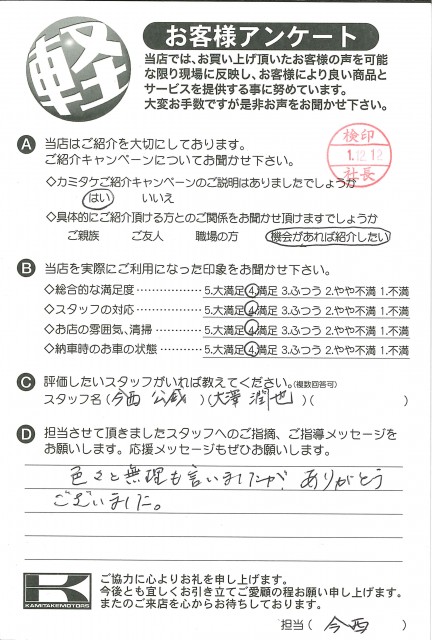 軽
お客様アンケート
当店では、お買い上げ頂いたお客様の声を可能
な限り現場に反映し、お客様により良い商品と
サービスを提供する事に努めています。
大変お手数ですが是非お声をお聞かせ下さい。
A 当店はご紹介を大切にしております。
ご紹介キャンペーンについてお聞かせ下さい。
検印
1.12.12
社長
◇カミタケご紹介キャンペーンのご説明はありましたでしょうか
はい いいえ
◇具体的にご紹介頂ける方とのご関係をお聞かせ頂けますでしょうか
ご親族 ご友人 職場の方 機会があれば紹介したい
B 当店を実際にご利用になった印象をお聞かせ下さい。
◇総合的な満足度 ⋯⋯⋯⋯⋯⋯ 5.大満足 4.満足 3.ふつう 2.やや不満 1.不満
◇スタッフの対応 ⋯⋯⋯⋯⋯⋯ 5.大満足 4.満足 3.ふつう 2.やや不満 1.不満
◇お店の雰囲気、清掃 ⋯⋯⋯⋯ 5.大満足 4.満足 3.ふつう 2.やや不満 1.不満
◇納車時のお車の状態 ⋯⋯⋯⋯ 5.大満足 4.満足 3.ふつう 2.やや不満 1.不満
C 評価したいスタッフがいれば教えてください。(複数回答可)
スタッフ名(今西 公威)(大澤 潤也)( )
D 担当させて頂きましたスタッフへのご指摘、ご指導メッセージを
お願いします。応援メッセージもぜひお願いします。
色々と無理も言いましたが、ありがとう
ございました。
K
KAMITAKEMOTORS
ご協力に心よりお礼を申し上げます。
今後とも宜しくお引き立てご愛顧の程お願い申し上げます。
またのご来店を心からお待ちしております。
担当( 今西 )